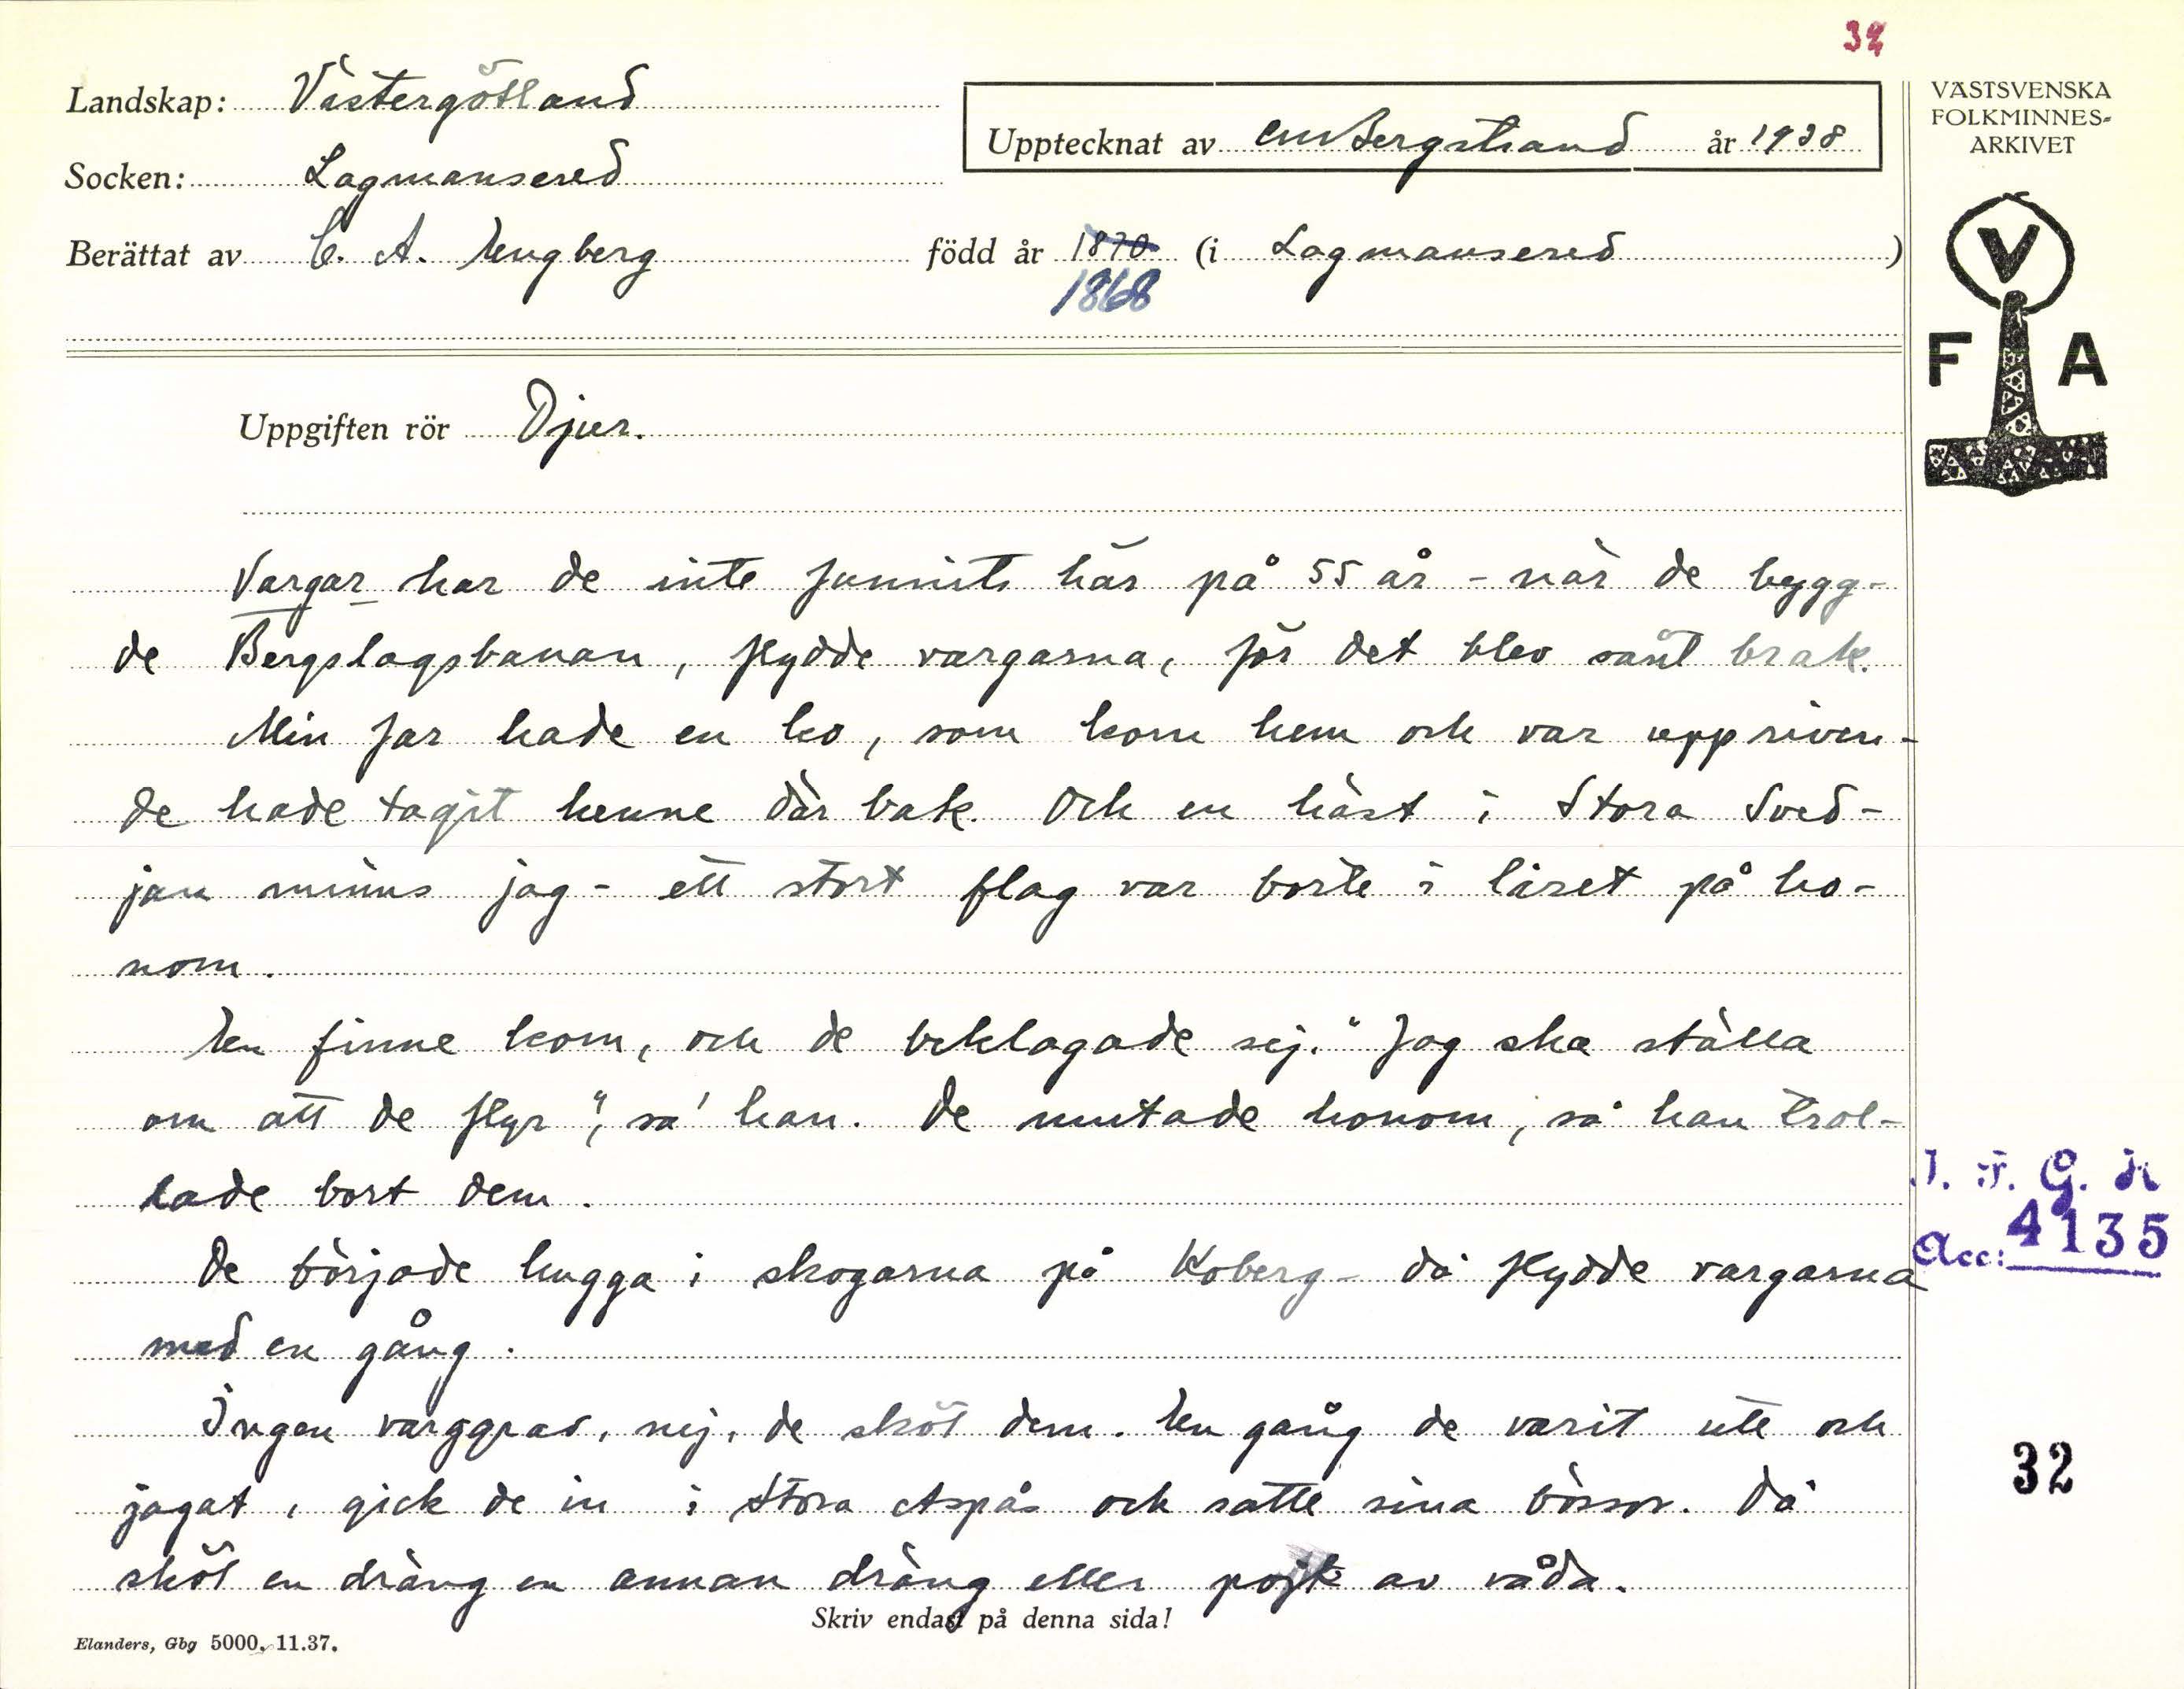 32
Landskap: Västergötland
Upptecknat av CM Bergstrand år 1938
Socken: Lagmansered
Berättat av C. A. Engberg född år 1870 (i Lagmansered)
1868
VÄSTSVENSKA
FOLKMINNES-
ARKIVET
V
F A
Uppgiften rör Djur.
Vargar har de inte funnits här på 55 år - när de bygg-
de Bergslagsbanan, flydde vargarna, för det blev sånt brak.
Min far hade en ko, som kom hem och var uppriven -
de hade tagit henne där bak. Och en häst i Stora Sved-
jan minns jag - ett stort flag var borte i låret på ho-
nom.
En finne kom, och de beklagade sej. "Jag ska ställa
om att de flyr", sa' han. De mutade honom, så han trol-
lade bort dem.
De började hugga i skogarna på Koberg - då flydde vargarna
med en gång.
Ingen varggrav, nej, de sköt dem. En gång de varit ute och
jagat, gick de in i Stora Aspås och satte sina bössor. Då
sköt en dräng en annan dräng eller pojk av våda.
Skriv endast på denna sida!
Elanders, Gbg 5000. 11.37.
I. F. G. H
Acc: 4135
32